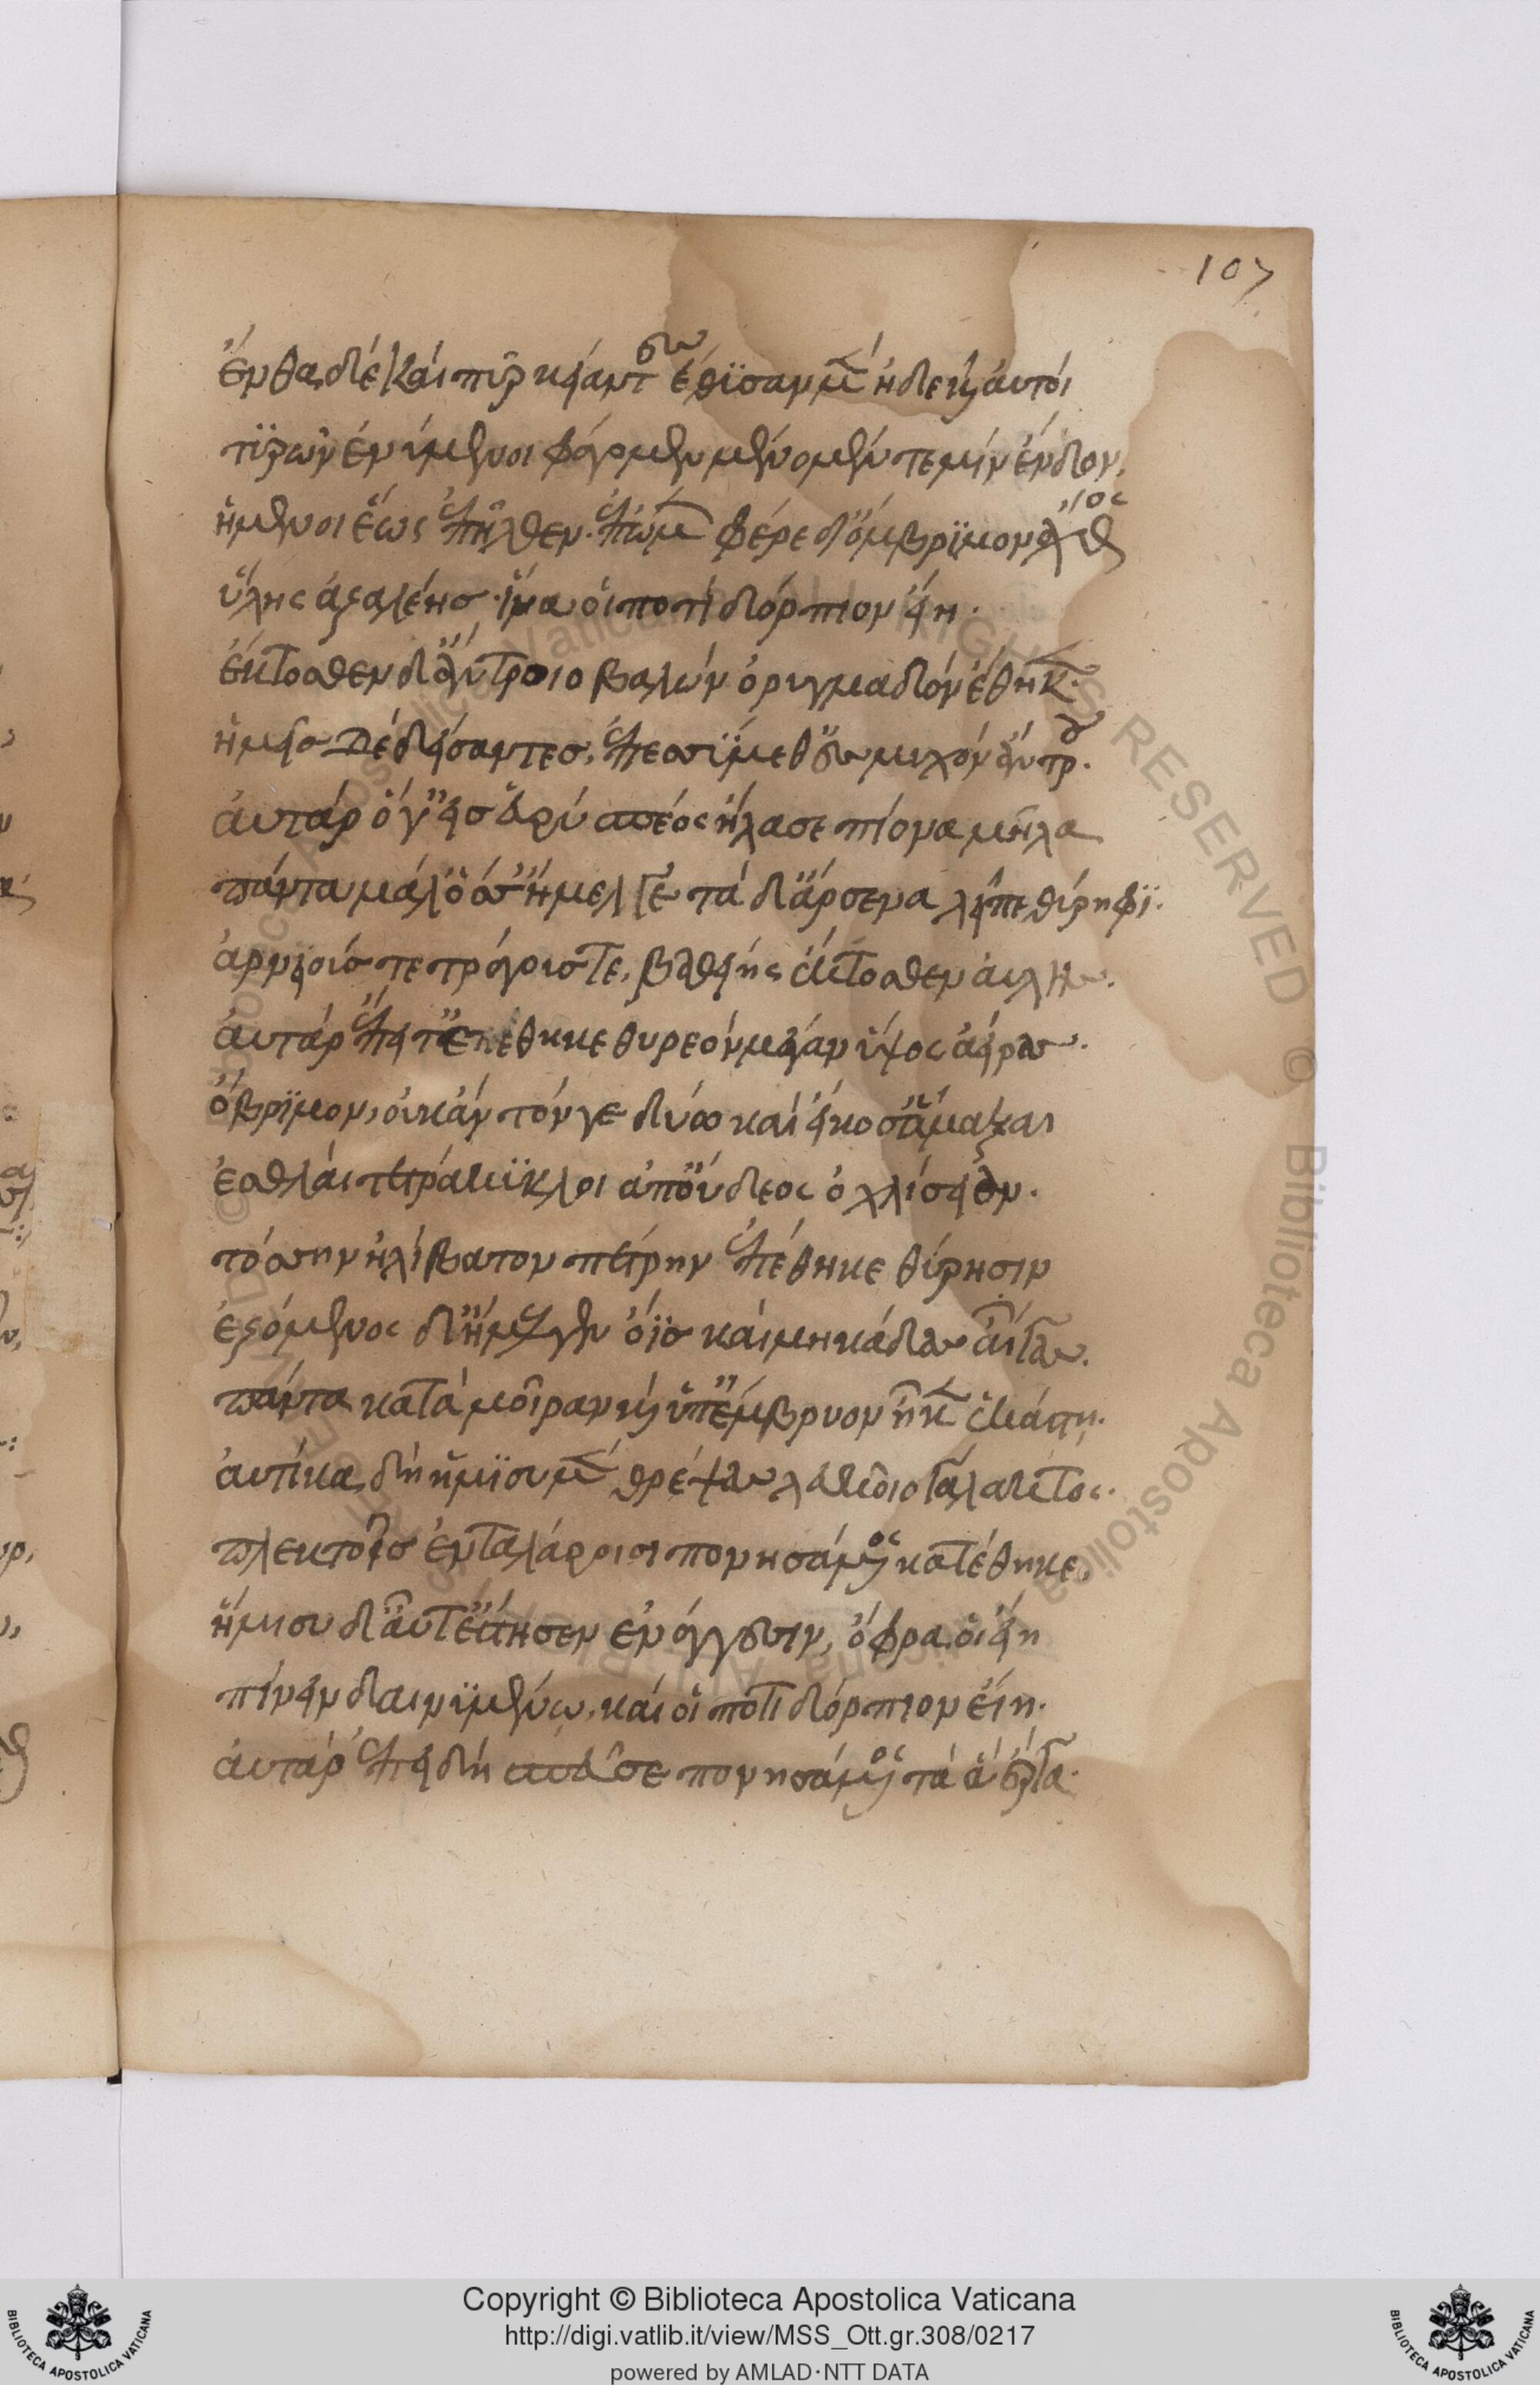 107
ἔνθα δὲ καὶ πῦρ κείαντες ἐθύσαμεν ἠδὲ καὶ αὐτοὶ
τυρῶν ἐνύμενοι φάγομεν μένομέν τέ μιν ἔνδον,
ἥμενοι ἕως ἐπῆλθεν. ἐπώμ φέρε δ' ὄμβριμον ἄχθος
ὕλης ἀζαλέης ἵνα οἱ ποτὶ δόρπιον εἴη.
ἔκτοσθεν δ' ἄντροιο βαλὼν ὀρυγμαδὸν ἔθηκ.
ἡμεῖς δὲ δείσαντες, ἐπεσσύμεθ' ἐς μυχὸν ἄντρου.
αὐτὰρ ὅγ' εἰς εὐρὺ σπέος ἤλασε πίονα μῆλα
πάντα μάλ' ὅσσ' ἤμελγε τὰ δ' ἄρσενα λεῖπε θύρηφι.
ἀρνειούς τε τράγους τε, βαθείης ἔκτοθεν αὐλῆς.
αὐτὰρ ἔπειτ' ἐπέθηκε θυρεὸν μέγαν ὑψόσ' ἀείρας.
ὄβριμον, οὐκ ἂν τόνγε δύω καὶ εἴκοσ' ἅμαξαι
ἐσθλαὶ τετράκυκλοι ἀπ' οὔδεος ὀχλίσειαν.
τόσσην ἠλίβατον πέτρην ἐπέθηκε θύρησιν
ἑζόμενος δ' ἤμελγεν ὄϊς καὶ μηκάδας αἶγας.
πάντα κατὰ μοῖραν καὶ ὑπ' ἔμβρυον ἧκεν ἑκάστη.
αὐτίκα δ' ἥμισυ μὲν θρέψας λευκοῖο γάλακτος.
πλεκτοῖς ἐν ταλάροισι πονησάμενος κατέθηκε,
ἥμισυ δ' αὖτ' ἔστησεν ἐν ἄγγεσιν, ὄφρα οἱ εἴη
πίνειν δαινυμένῳ, καί οἱ ποτὶ δόρπιον εἴη.
αὐτὰρ ἐπειδὴ σπεῦσε πονησάμενος τὰ ἃ ἔργα.
Copyright © Biblioteca Apostolica Vaticana
http://digi.vatlib.it/view/MSS_Ott.gr.308/0217
powered by AMLAD·NTT DATA